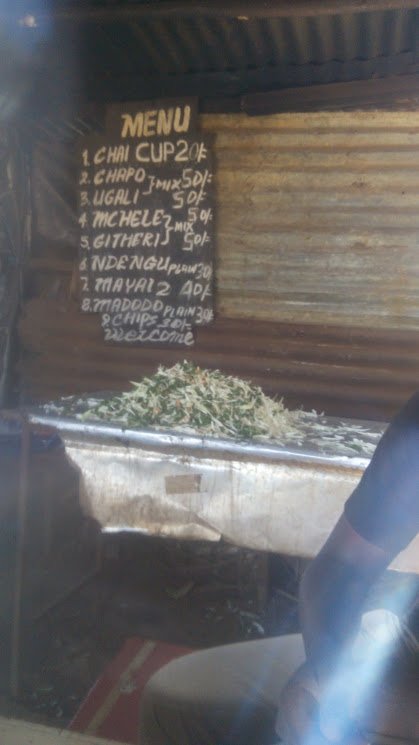 MENU
1. CHAI CUP 20/-
2. CHAPO } MIX 50/-
3. UGALI 50/-
4 MCHELE } MIX 50/-
5. GITHERI 50/-
6 NDENGU PLAIN 30/-
7. MAYAI 2 40/-
8. MADODO PLAIN 30/-
9 CHIPS 30/-
WELCOME